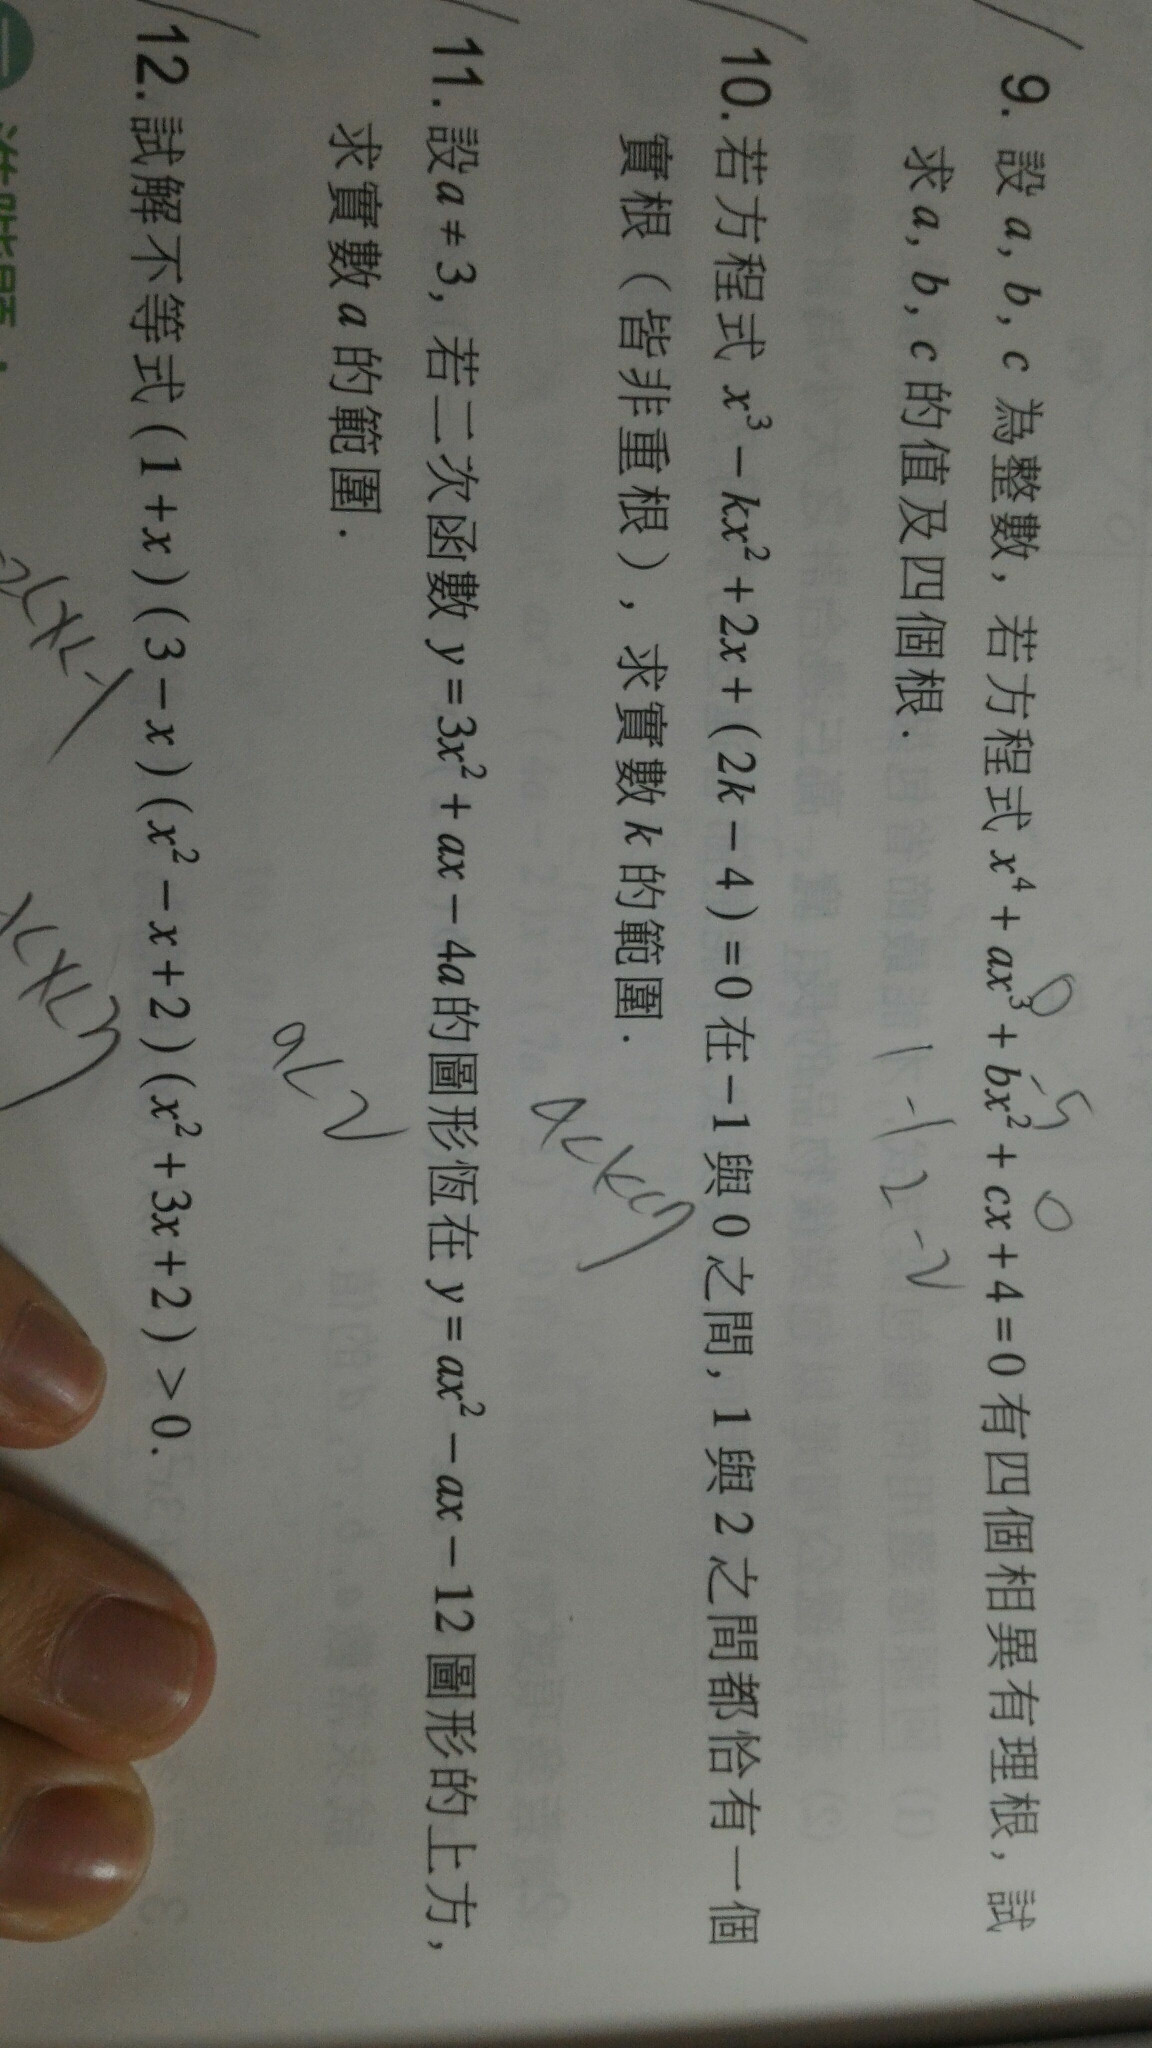 9. 設 a, b, c 為整數, 若方程式 x⁴ + ax³ + bx² + cx + 4 = 0 有四個相異有理根, 試
0 -5 0
求 a, b, c 的值及四個根.
1 -1 2 -2
10. 若方程式 x³ − kx² + 2x + (2k − 4) = 0 在 −1 與 0 之間, 1 與 2 之間都恰有一個
實根 (皆非重根), 求實數 k 的範圍.
11. 設 a ≠ 3, 若二次函數 y = 3x² + ax − 4a 的圖形恆在 y = ax² − ax − 12 圖形的上方,
求實數 a 的範圍.
a<2
12. 試解不等式 (1 + x)(3 − x)(x² − x + 2)(x² + 3x + 2) > 0.